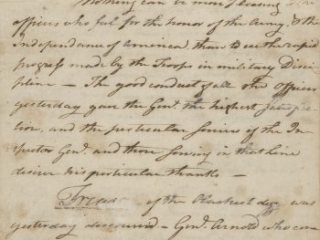 Nothing can be more pleasing to the
officers who feel for the honor of the Army, & the
independance of America, than to see the rapid
progress made by the Troops in military Disci-
pline — The good conduct of all the Officers
yesterday gave the Genl. the highest satisfac-
tion, and the particular service of the In-
spector Genl. and those serving in that line
desires his particular thanks —
Treason of the blackest dye was
yesterday discovered — Genl. Arnold who com-